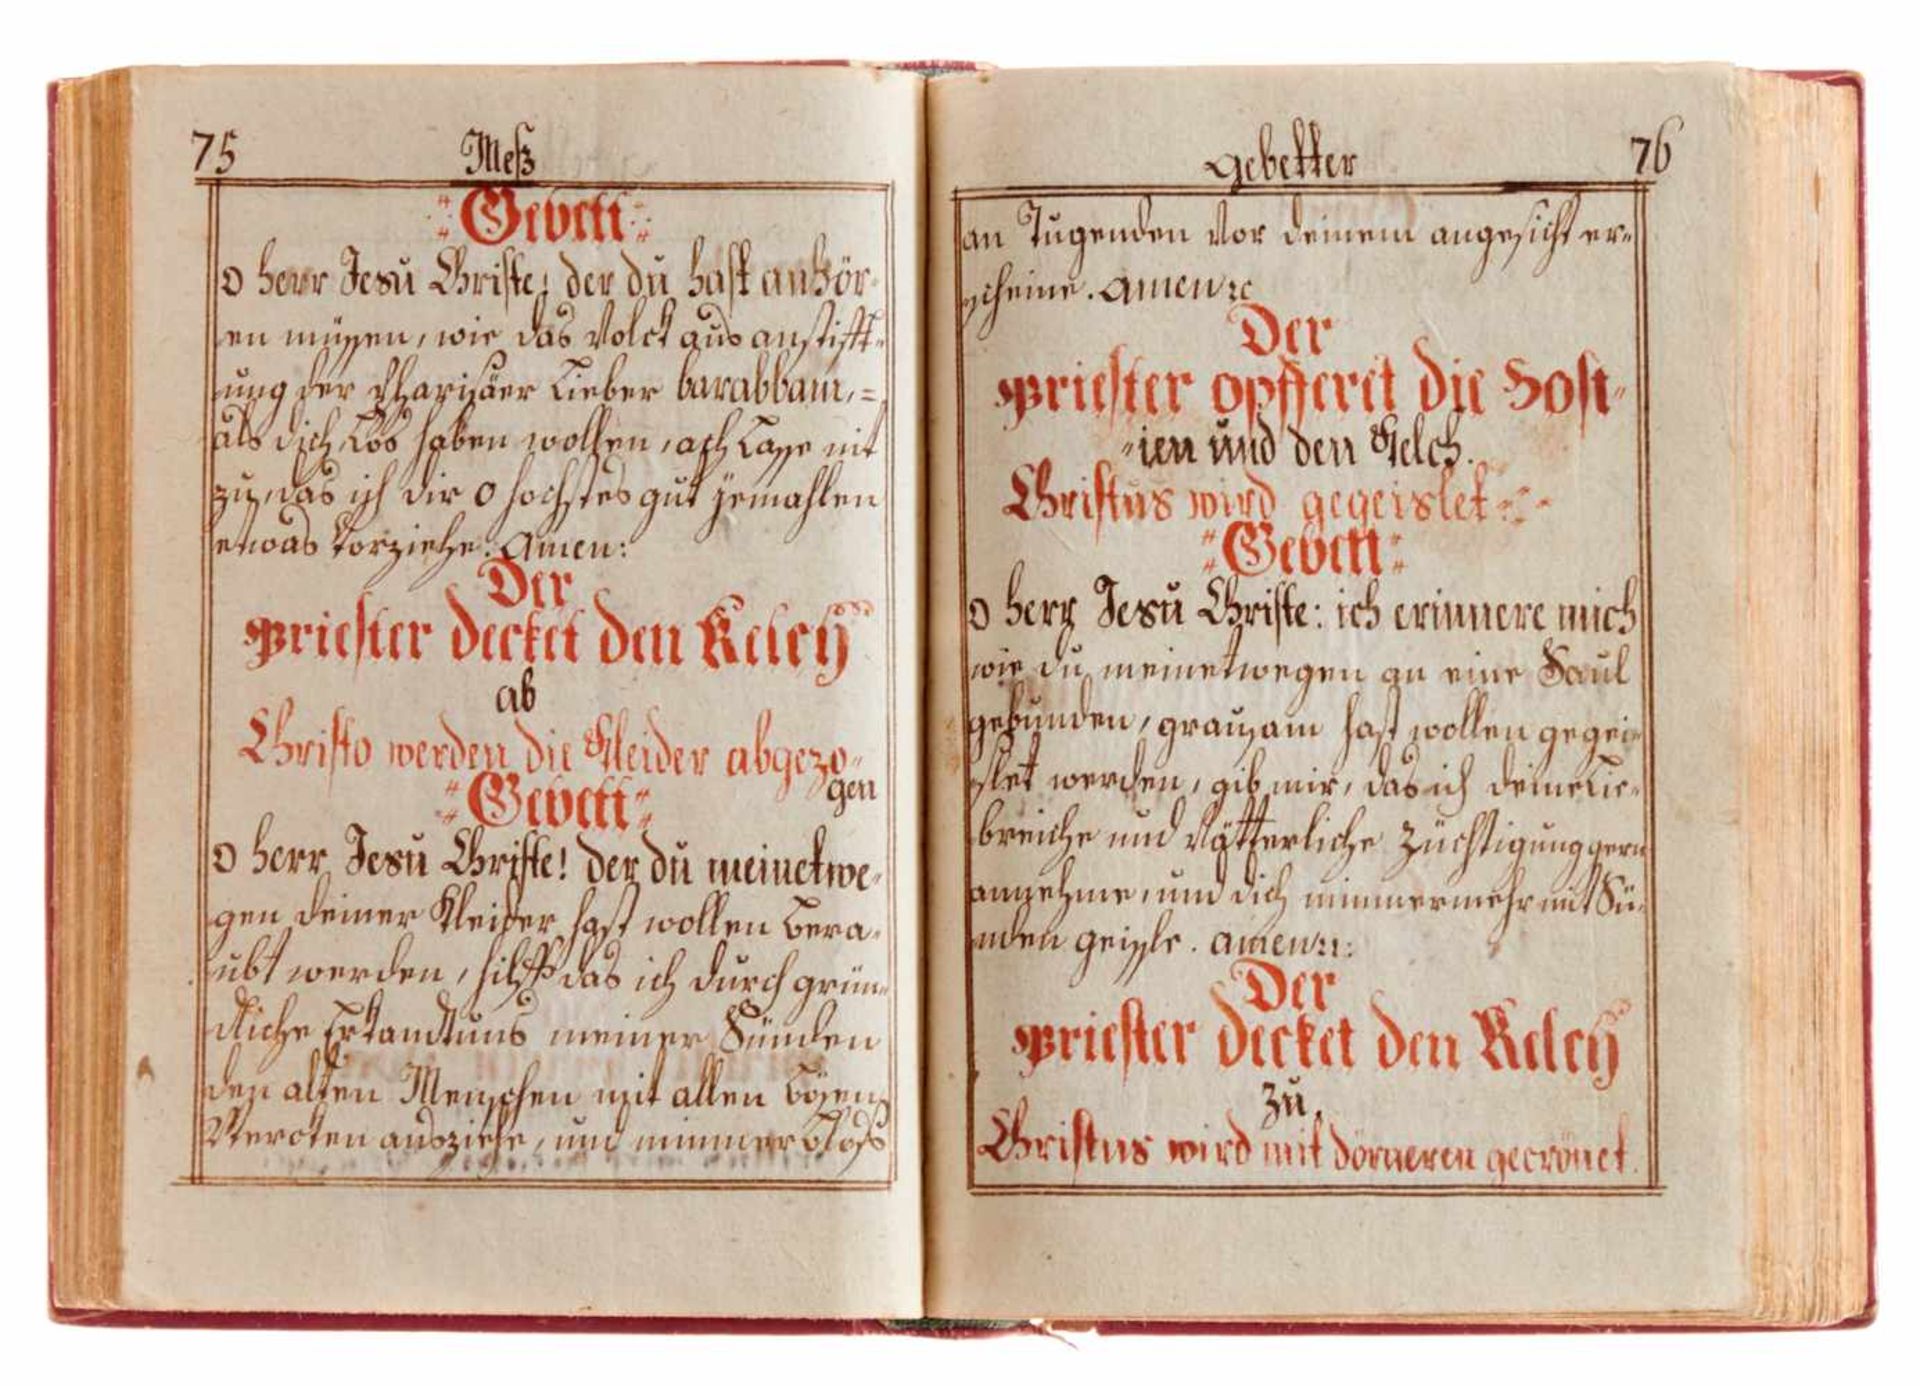 75 Meß
Gebett
O herr Jesu Christe! der du hast anhör-
en müssen, wie das Volck aus anstifft-
ung der Pharisäer Lieber barabbam,=
als dich Los haben wollen, ach Lasse nit
zu, das ich dir o hochstes gut jemahlen
etwas Vorziehe. Amen:
Der
Priester decket den Kelch
ab
Christo werden die Kleider abgezo-
gen
Gebett
O herr Jesu Christe! der du meinetwe-
gen deiner Kleider hast wollen bera-
ubt werden, hilff das ich durch grün-
dliche Erkandtnus meiner Sünden
den alten Menschen mit allen bösen
ausziehe, und nimmer bloß
Gebetter 76
an Tugenden Vor deinem angesicht er-
scheine. Amen ꝛc
Der
Priester opfferet die Host-
-ien und den Kelch.
Christus wird gegeislet
Gebett
O herr Jesu Christe: ich erinnere mich
wie du meinetwegen an eine Saul
gebunden, grausam hast wollen gegei-
slet werden, gib mir, das ich deine Lie-
breiche und Vätterliche Züchtigung gern
annehme, und dich nimmermehr mit Sü-
nden geissle. Amen ꝛc:
Der
Priester decket den Kelch
zu
Christus wird mit dörneren gecrönet.